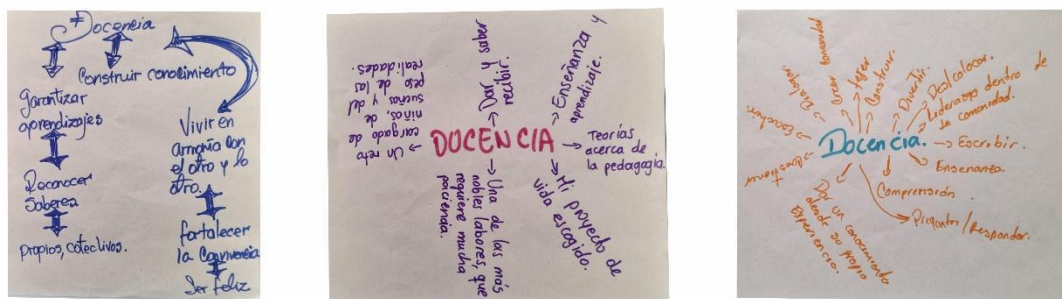 Docencia
Construir conocimiento
garantizar
aprendizajes
Reconocer
Saberes
propios, colectivos.
Vivir en
armonía con
el otro y lo
otro.
fortalecer
la Convivencia
Ser feliz
DOCENCIA
Dar y saber
recibir.
Enseñanza y
aprendizaje.
Teorías
acerca de
la pedagogía.
Mi proyecto de
vida escogido.
Una de las más
nobles labores, que
requiere mucha
paciencia.
Un reto
cargado de
niños, de
sueños y del
peso de las
realidades.
Docencia.
Escuchar
Dialogar
Crear comunidad
tejer
Construir
Divertir.
Deslocalizar.
Liderazgo dentro de
la comunidad.
Escribir.
Enseñanza.
Comprensión
Preguntar / Responder.
Dar un conocimiento
desde su propia
Experiencia.